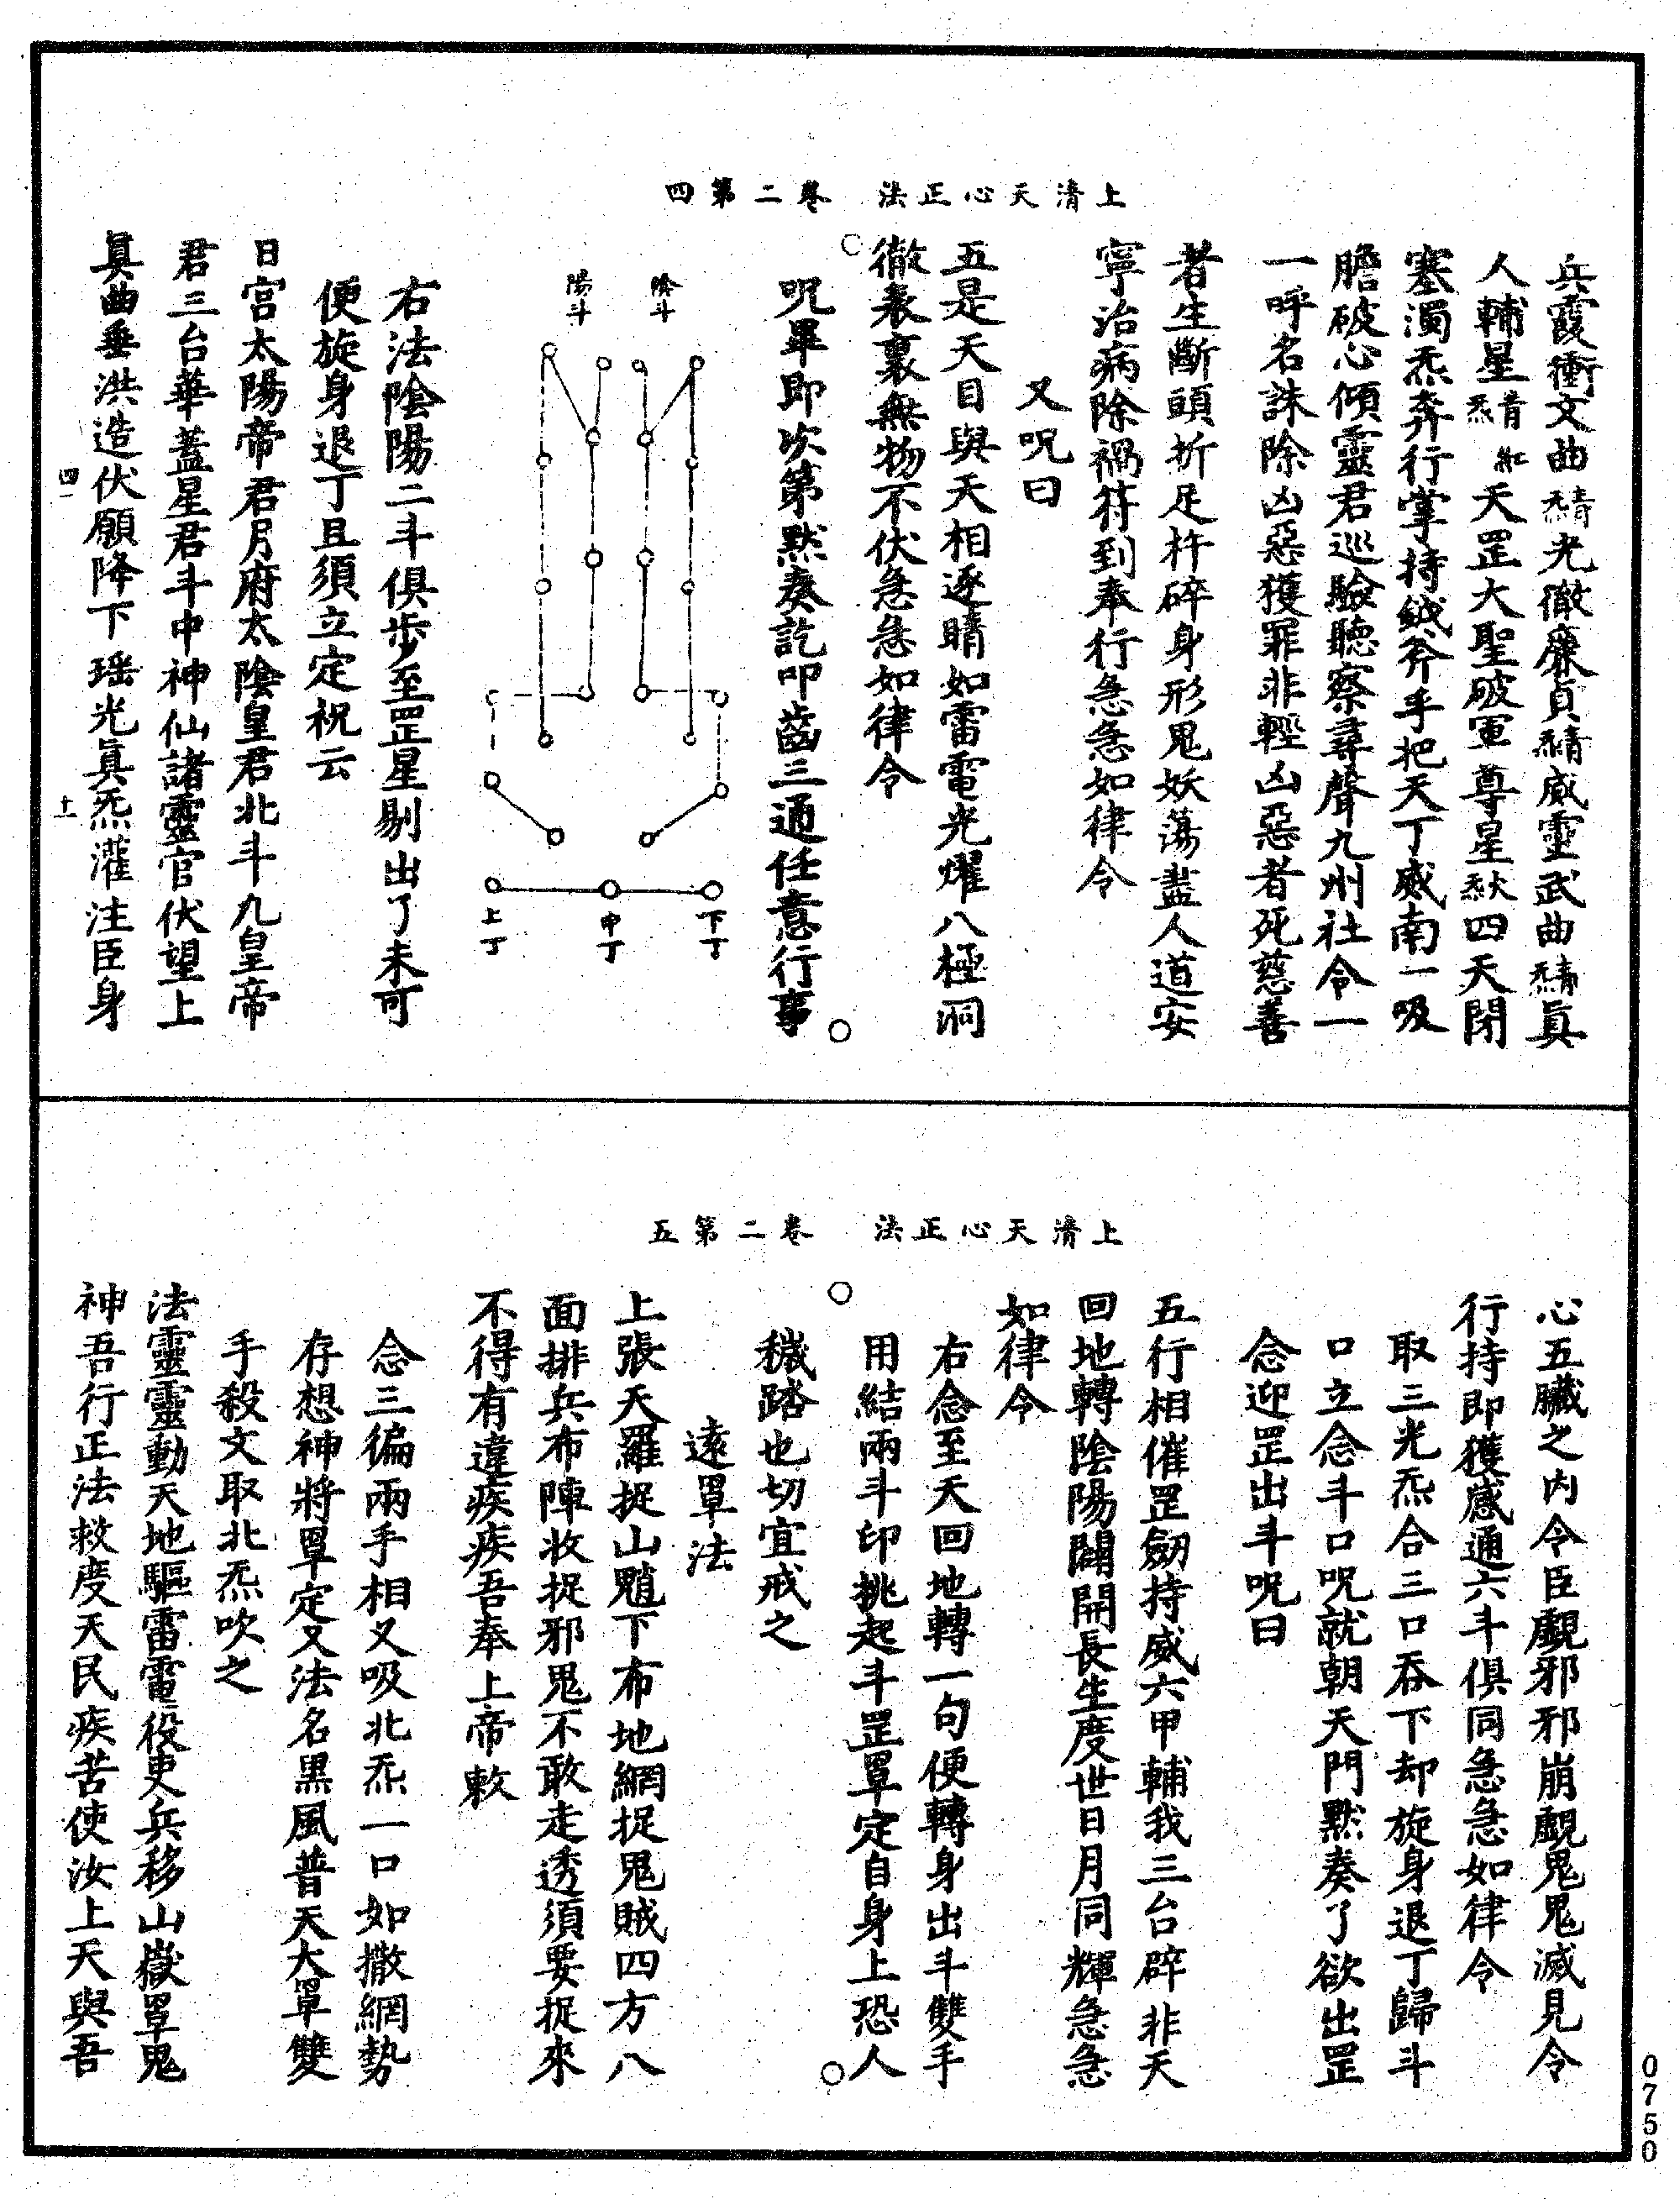 上清天心正法　卷二第四
兵霞衝文曲炁青光徹廉貞炁綪威靈武曲炁青眞
人輔星炁青紅天罡大聖破軍尊星炁火四天閉
塞濁炁奔行掌持鉞斧手把天丁威南一吸
膽破心傾靈君巡驗聽察尋聲九州社令一
一呼名誅除凶惡獲罪非輕凶惡者死慈善
者生斷頭折足杵碎身形鬼妖蕩盡人道安
寧治病除禍符到奉行急急如律令
又呪曰
五是天目與天相逐睛如雷電光耀八極洞
徹表裏無物不伏急急如律令
呪畢即次第默奏訖叩齒三通任意行事
陰斗
陽斗
下丁
中丁
上丁
右法陰陽二斗俱步至罡星剔出了未可
便旋身退丁且須立定祝云
日宮太陽帝君月府太陰皇君北斗九皇帝
君三台華蓋星君斗中神仙諸靈官伏望上
眞曲垂洪造伏願降下瑶光眞炁灌注臣身
四一　十一
上清天心正法　卷二第五
心五臟之内令臣覷邪邪崩覷鬼鬼滅見令
行持即獲感通六斗俱同急急如律令
取三光炁合三口吞下却旋身退丁歸斗
口立念斗口呪就朝天門默奏了欲出罡
念迎罡出斗呪曰
五行相催罡劒持威六甲輔我三台辟非天
回地轉陰陽闢開長生度世日月同輝急急
如律令
右念至天回地轉一句便轉身出斗雙手
用結兩斗印挑起斗罡罩定自身上恐人
穢踏也切宜戒之
遠罩法
上張天羅捉山魈下布地網捉鬼賊四方八
面排兵布陣收捉邪鬼不敢走透須要捉來
不得有違疾疾吾奉上帝敕
念三徧兩手相叉吸北炁一口如撒網勢
存想神將罩定又法名黑風普天大罩雙
手殺文取北炁吹之
法靈靈動天地驅雷電役吏兵移山嶽罩鬼
神吾行正法救度天民疾苦使汝上天與吾
0750